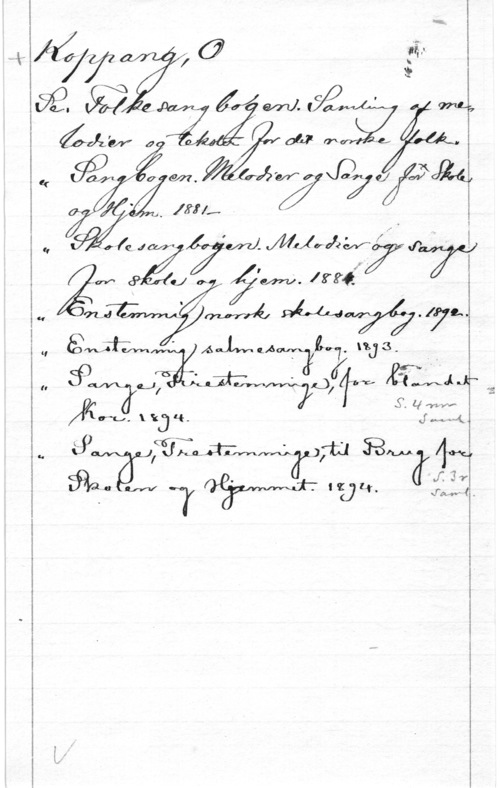 + Koppang, O
Se. Folkesangbogen. Samling af me=
lodier og tekster for det norske folk.
" Sangbogen. Melodier og Sange for Skole
og Hjem. 1881_
" Skolesangbogen. Melodier og sange
for skole og hjem. 1884.
" Enstemmig) norsk skolesangbog. 1892.
" Enstemmig) salmesangbog. 1893.
" Sange, (Firestemmige,) for blandet
Kor. 1894. S. 4 nr
Saml.
" Sange, (Trestemmige,) til Brug for
Skolen og Hjemmet. 1894. S. 3 r
Saml.
V